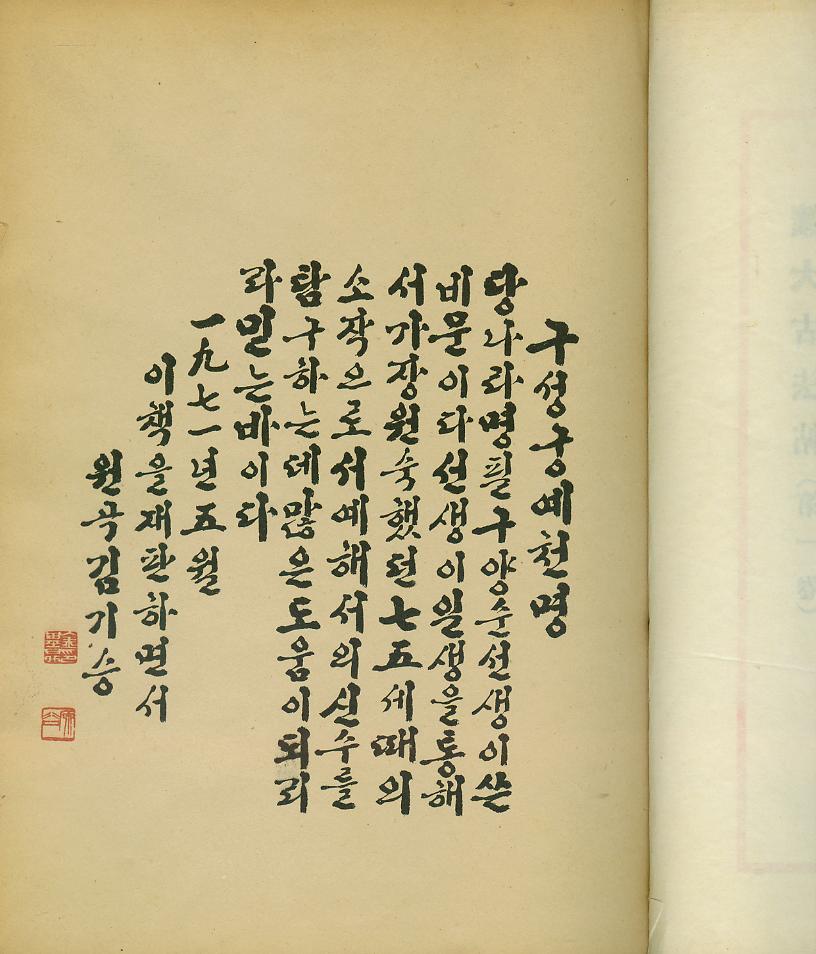 구성궁예천명
당나라명필구양순선생이쓴
비문이다선생이일생을통해
서가장원숙했던七五세때의
소작으로서예해서의신수를
탐구하는데많은도움이되리
라믿는바이다
一九七一년五월
이책을재판하면서
원곡김기승